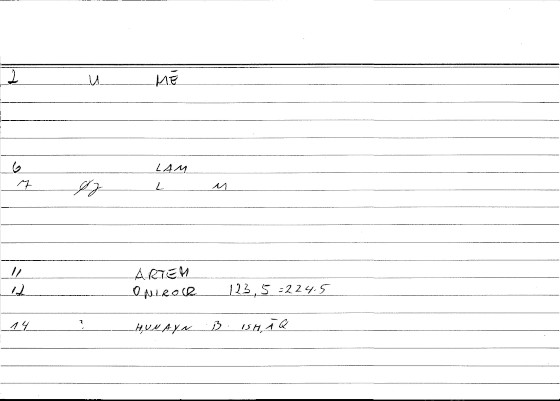 2 U MĒ
6 LAM
7 Øz L M
11 ARTEM
12 ONIROCR 123,5 = 224.5
14 : ḤUNAYN B. ISḤĀQ